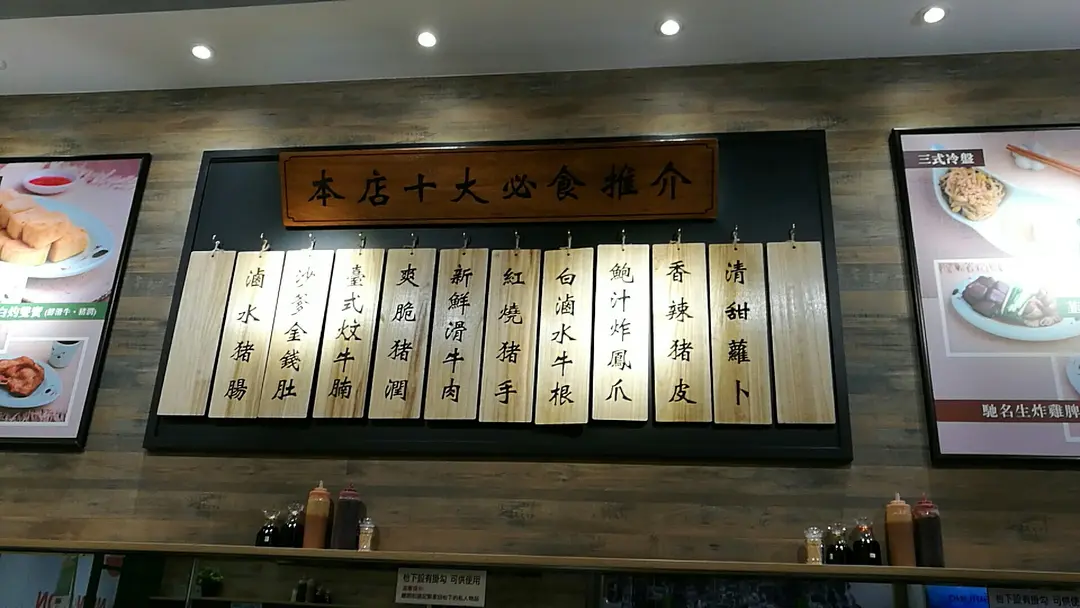 本店十大必食推介
滷水豬腸
沙爹金錢肚
臺式炆牛腩
爽脆豬潤
新鮮滑牛肉
紅燒豬手
白滷水牛根
鮑汁炸鳳爪
香辣豬皮
清甜蘿卜
三式冷盤
馳名生炸雞脾
枱下設有掛勾 可供使用
枱下設有掛勾 可供使用